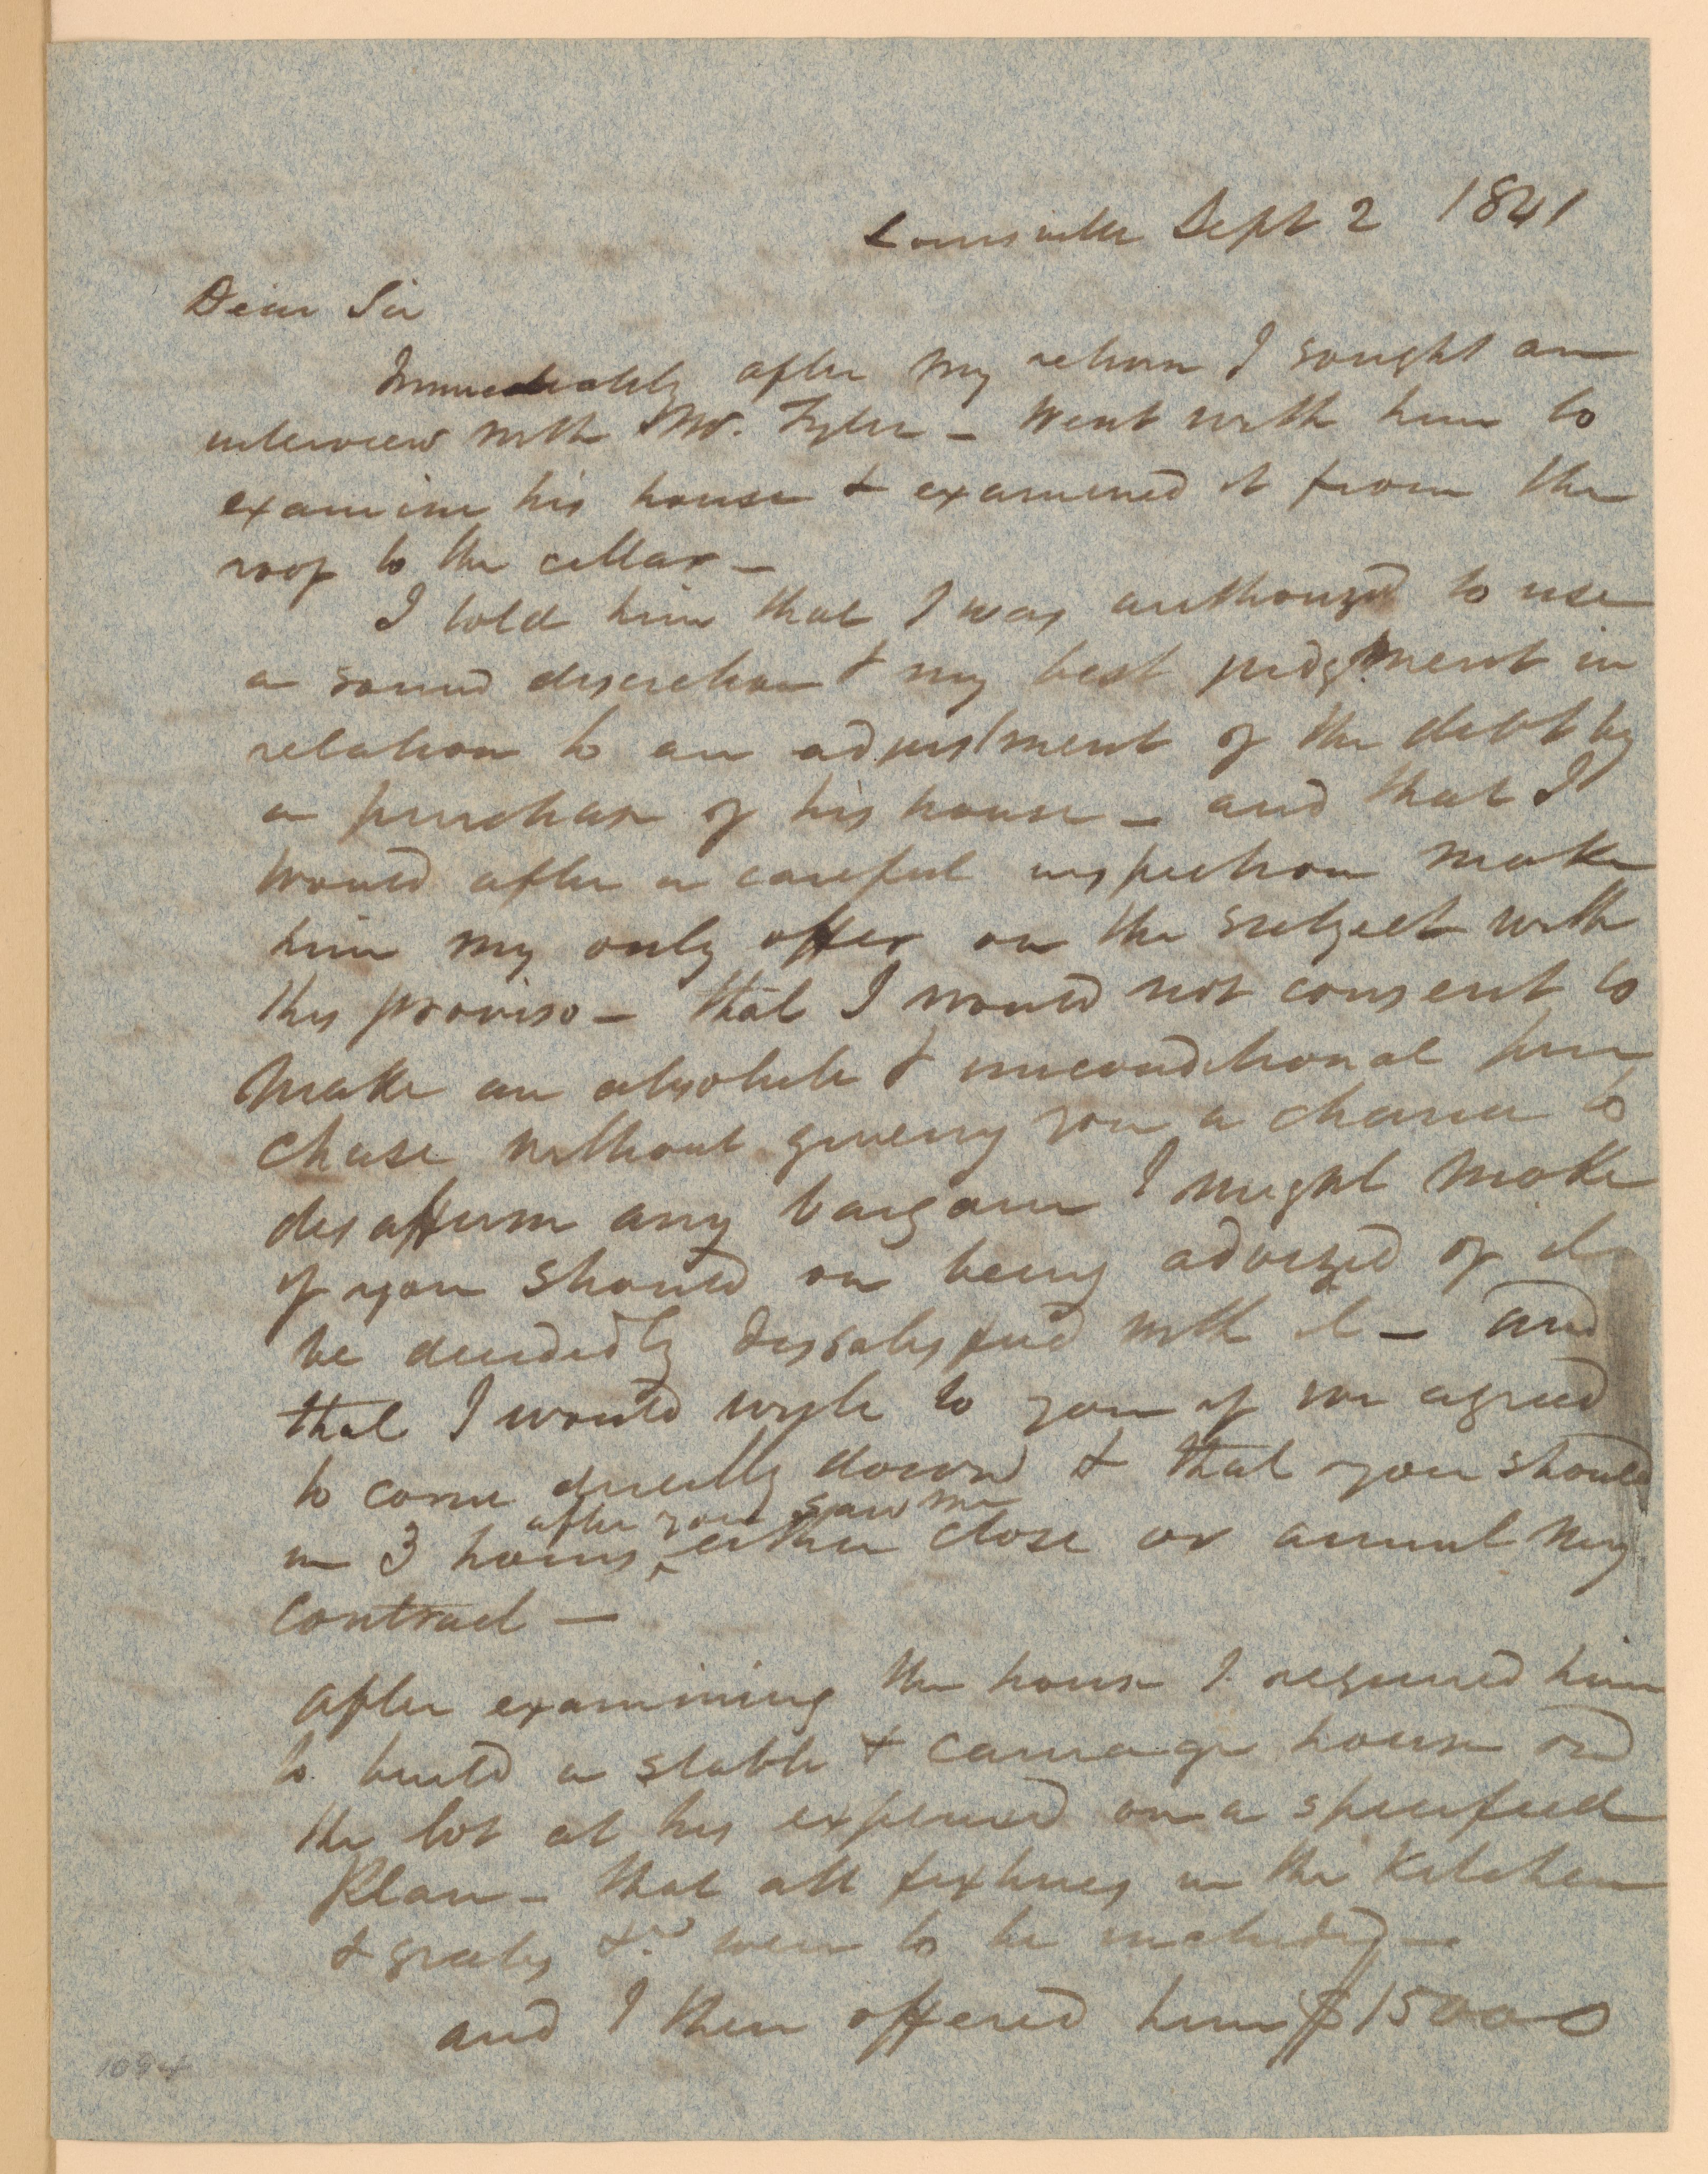 Louisville Sept 2 1841
Dear Sir
Immediately after my return I sought an
interview with Mr. Tyler – Went with him to
examine his house & examined it from the
roof to the cellar –
I told him that I was authorized to use
a sound discretion & my best judgment in
relation to an adjustment of the debt by
a purchase of his house – and that I
would after a careful inspection make
him my only offer on the subject with
this proviso – that I would not consent to
make an absolute & unconditional pur
chase without giving you a chance to
disaffirm any bargain I might make
if you should on being advized of it
be decidedly dissatisfied with it – and
that I would write to you if we agreed
to come directly down & that you should
after you saw me
in 3 hours ^ either close or annul my
contract –
After examining the house I required him
to build a stable & carriage house on
the lot at his expense on a specified
Plan – that all fixtures in the Kitchen
& grates &c were to be included –
and I then offered him $15000
1094